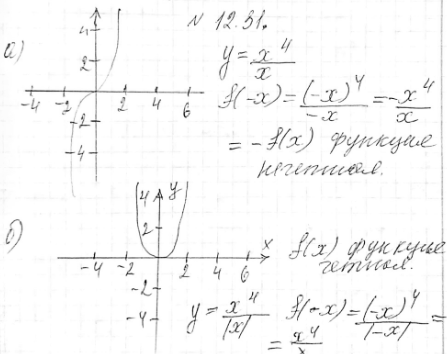 N 12.31.
а)
4
2
-4 -2 2 4 6
-2
-4
y = x^4/x
f(-x) = (-x)^4/-x = -x^4/x
= -f(x) функция
нечетная.
б)
4 y
2
x
-4 -2 2 4 6
-2
-4
f(x) функция
четная.
y = x^4/|x| f(-x) = (-x)^4/|-x| =
= x^4/x